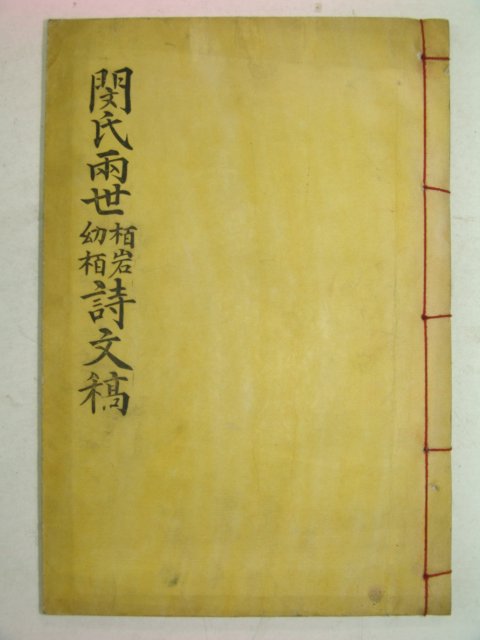 閔氏兩世
栢岩
幼栢
詩文稿